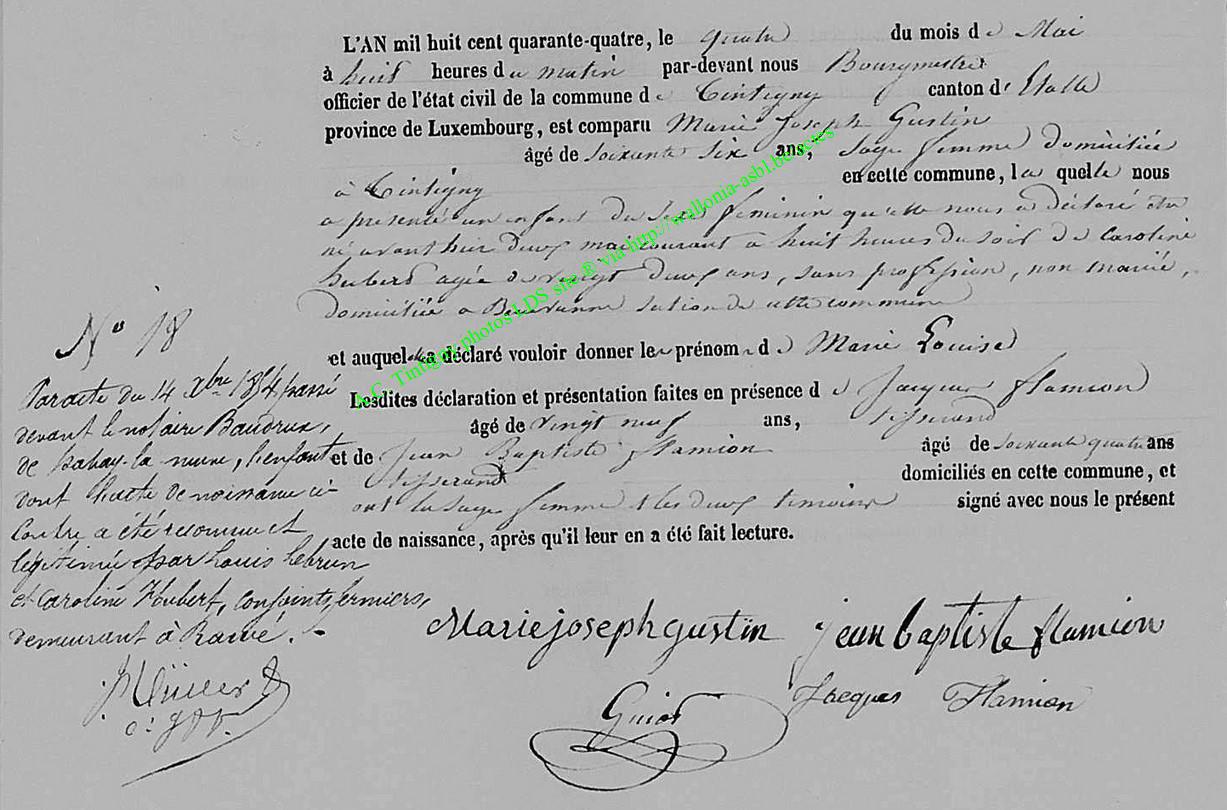 L'AN mil huit cent quarante-quatre, le quatre du mois de Mai
à huit heures du matin par-devant nous Bourgmestre
officier de l'état civil de la commune de Tintigny canton d'Etalle
province de Luxembourg, est comparu Marie Joseph Gustin
âgé de soixante six ans, sage femme domiciliée
à Tintigny en cette commune, la quelle nous
a presenté un enfant du sexe feminin qu'elle nous a déclaré être
né avant hier deux mai courant a huit heures du soir de Caroline
Hubert agée de vingt deux ans, sans profession, non mariée,
domiciliée a section de cette commune
et auquel elle a déclaré vouloir donner le prénom de Marie Louise
Lesdites déclaration et présentation faites en présence de Jacques Flamion
âgé de vingt neuf ans, tisserand
et de Jean Baptiste Flamion âgé de soixante quatre ans
tisserand domiciliés en cette commune, et
ont la sage femme & les deux temoins signé avec nous le présent
acte de naissance, après qu'il leur en a été fait lecture.
N° 18
Par acte du 14 Xbre passé
devant le notaire Baudrux,
de habay-la neuve, l'enfant
dont l'acte de naissance ci-
contre a été reconnu et
légitimée par Louis Lebrun
et Caroline Hubert, conjoints, fermiers,
demeurant à
Mariejosephgustin jean baptiste flamion
Jacques Flamion
A.C. Tintigny photos LDS site ® via http://wallonia-asbl.be/actes